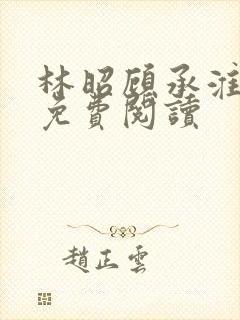 林昭顾承淮
免費閱讀
趙正雲